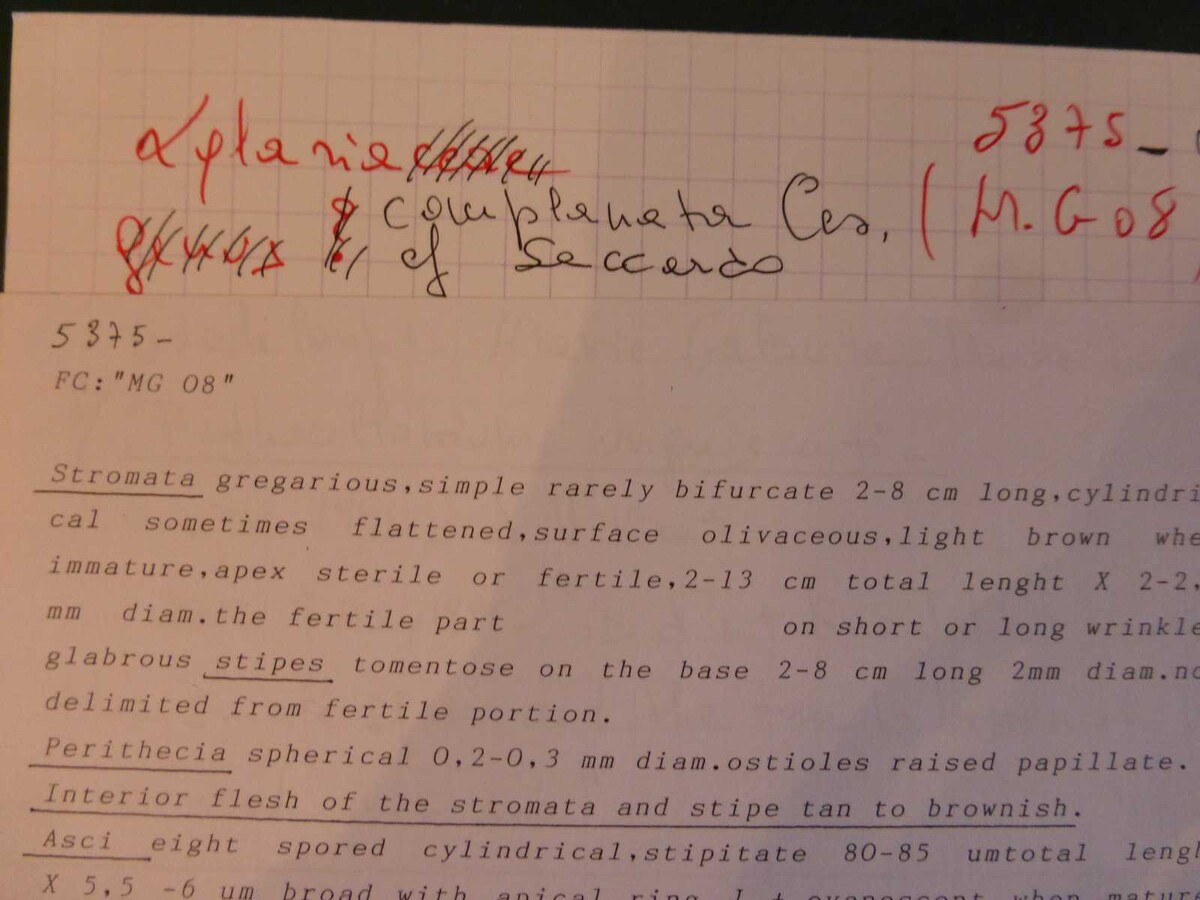 Xylaria 5375-
complanata Ces. (M.G 08
cf Saccardo
5375-
FC:"MG 08"
Stromata gregarious,simple rarely bifurcate 2-8 cm long,cylindri
cal sometimes flattened,surface olivaceous,light brown whe
immature,apex sterile or fertile,2-13 cm total lenght X 2-2,
mm diam.the fertile part on short or long wrinkle
glabrous stipes tomentose on the base 2-8 cm long 2mm diam.no
delimited from fertile portion.
Perithecia spherical 0,2-0,3 mm diam.ostioles raised papillate.
Interior flesh of the stromata and stipe tan to brownish.
Asci eight spored cylindrical,stipitate 80-85 umtotal lengh
X 5,5 -6 um broad with apical ring I + evanescent when mature